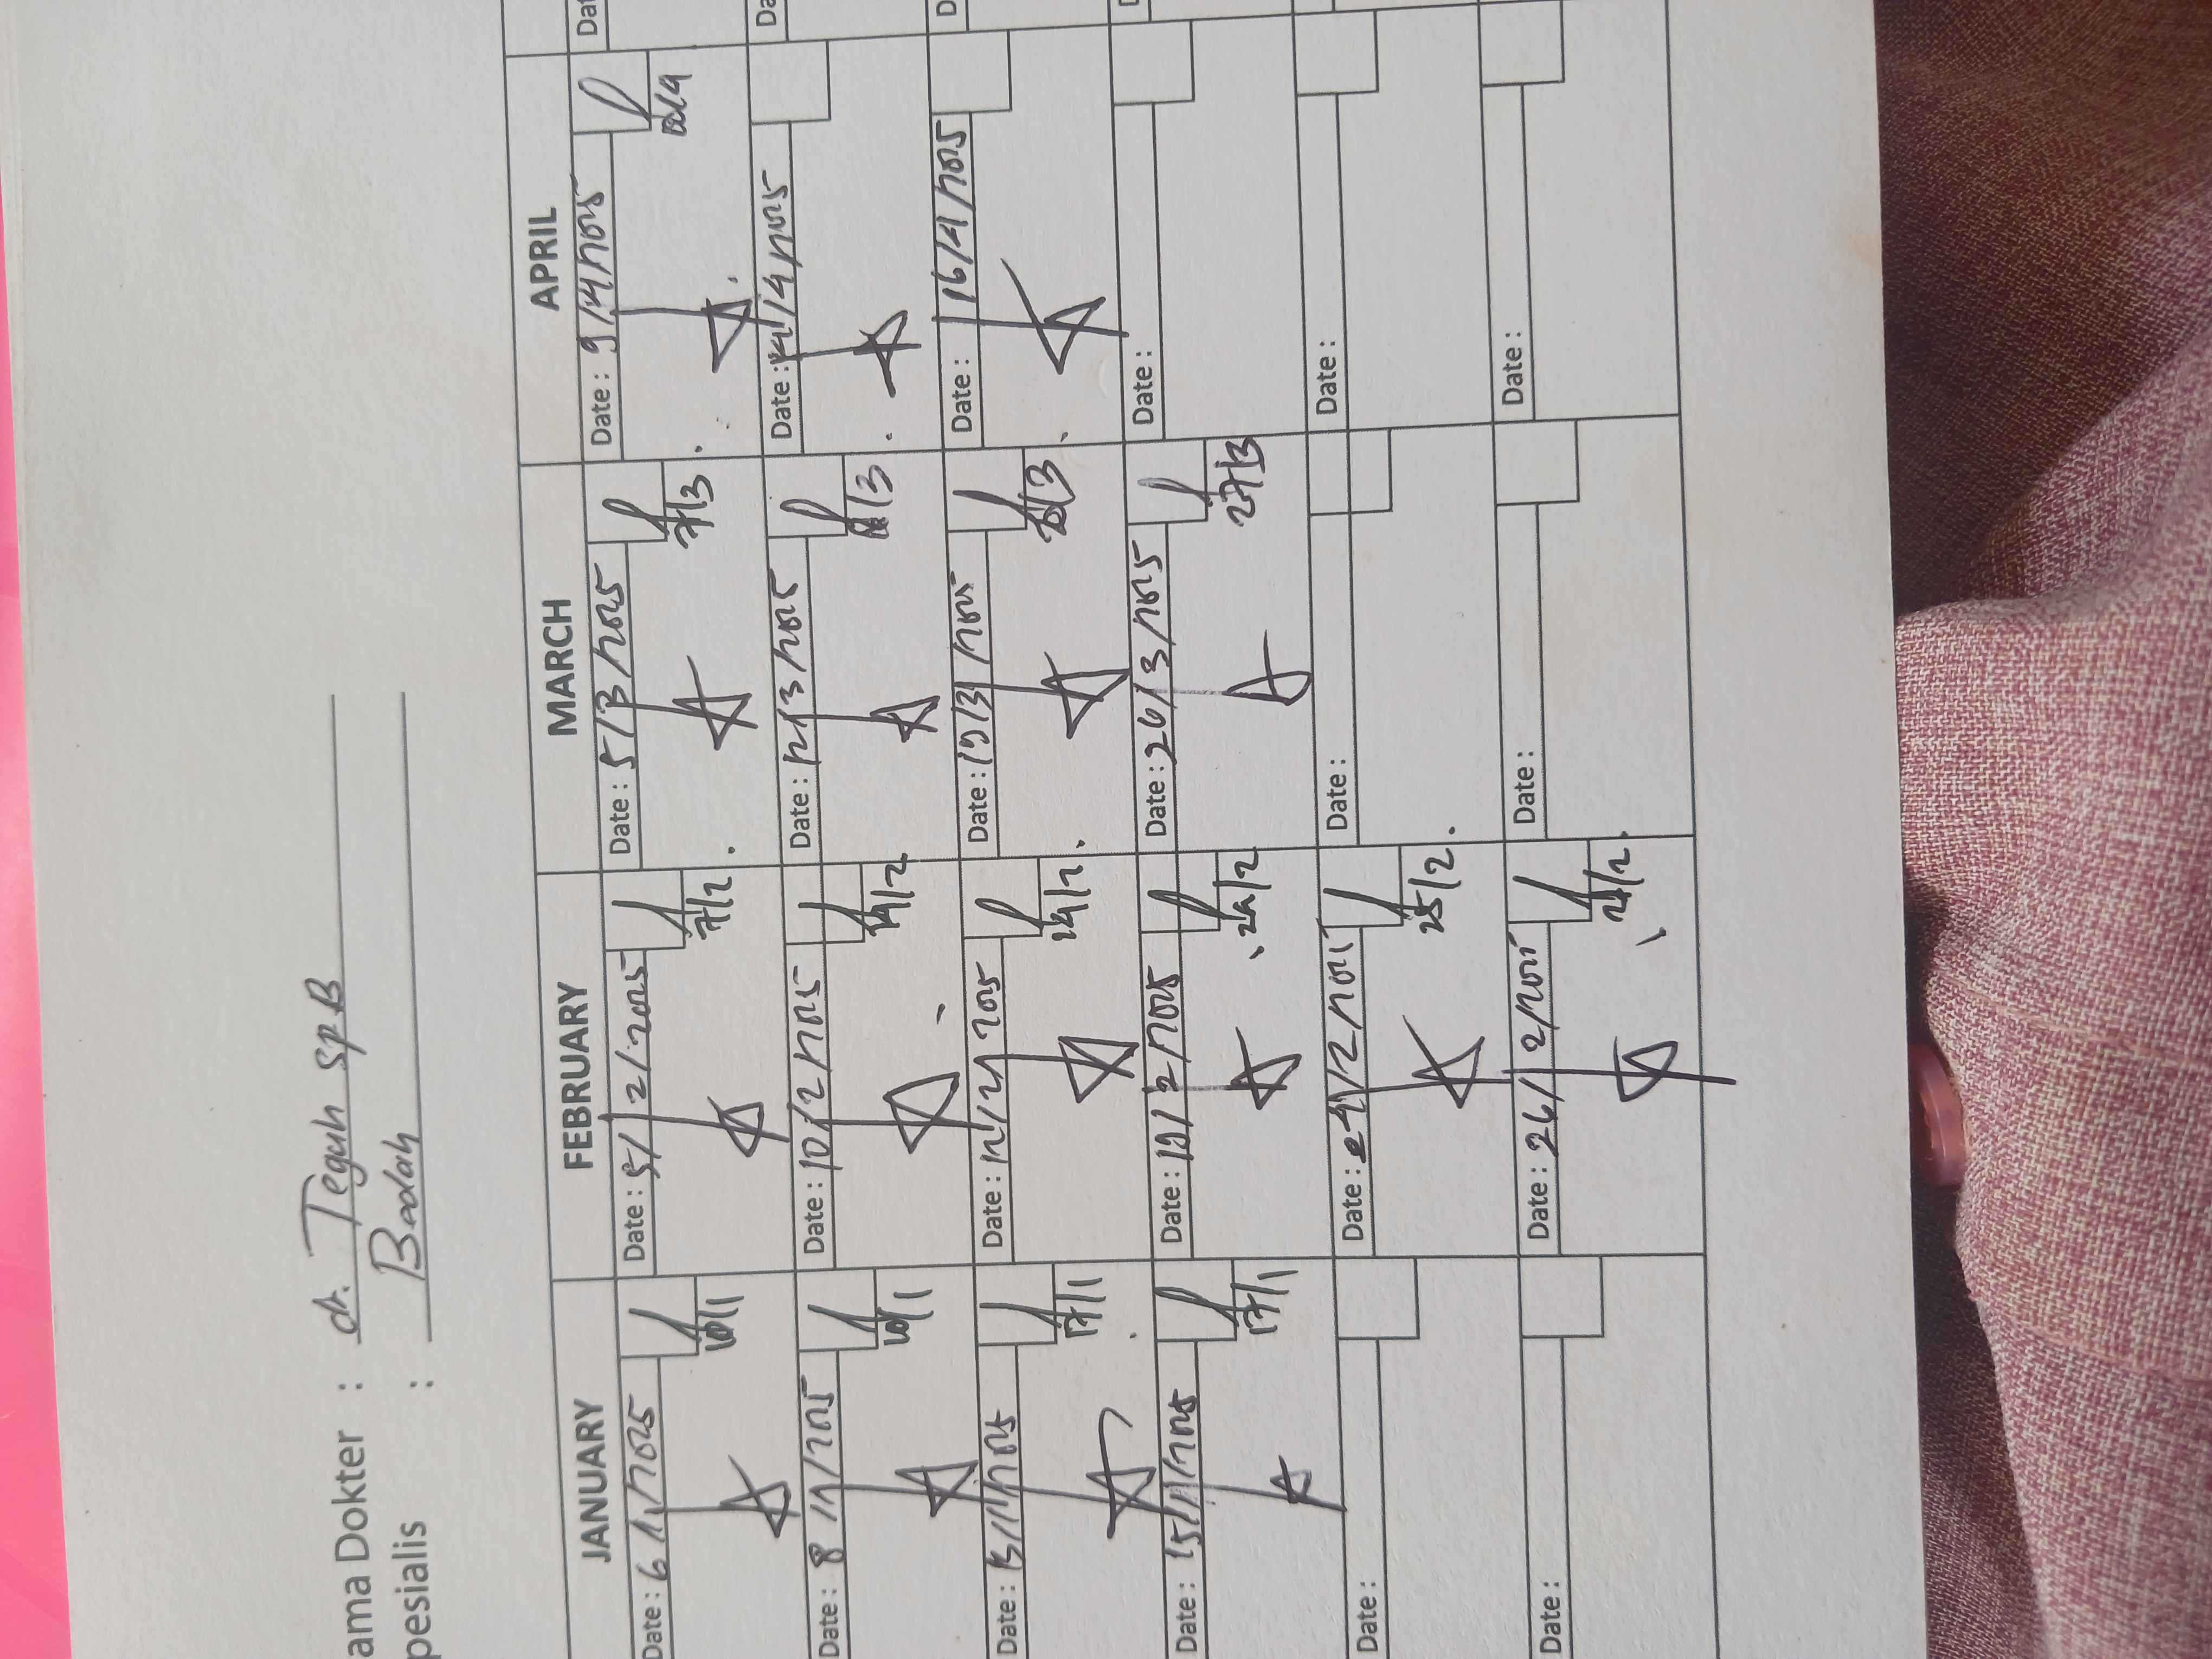 ama Dokter : dr. Teguh SpB
pesialis : Bedah
JANUARY FEBRUARY MARCH APRIL
Date : 6/1/2025 Date : 5/2/2025 Date : 5/3/2025 Date : 9/4/2025 Dat
10/1 7/2 7/3
Date : 8/1/2025 Date : 10/2/2025 Date : 12/3/2025 Date : 14/4/2025 Da
10/1 14/2 /3
Date : 13/1/2025 Date : 12/2/2025 Date : 19/3/2025 Date : 16/4/2025 D
17/1 /2 /3
Date : 15/1/2025 Date : 19/2/2025 Date : 26/3/2025 Date :
17/1 24/2 27/3
Date : Date : 24/2/2025 Date : Date :
25/2
Date : Date : 26/2/2025 Date : Date :
/2